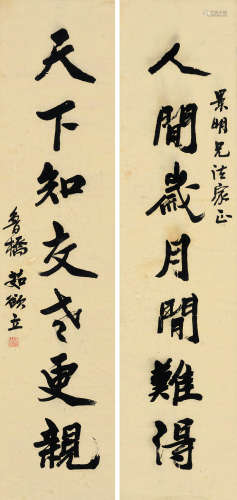 景明兄法家正
人間歲月閒難得
天下知友老更親
魯橋茹欲立